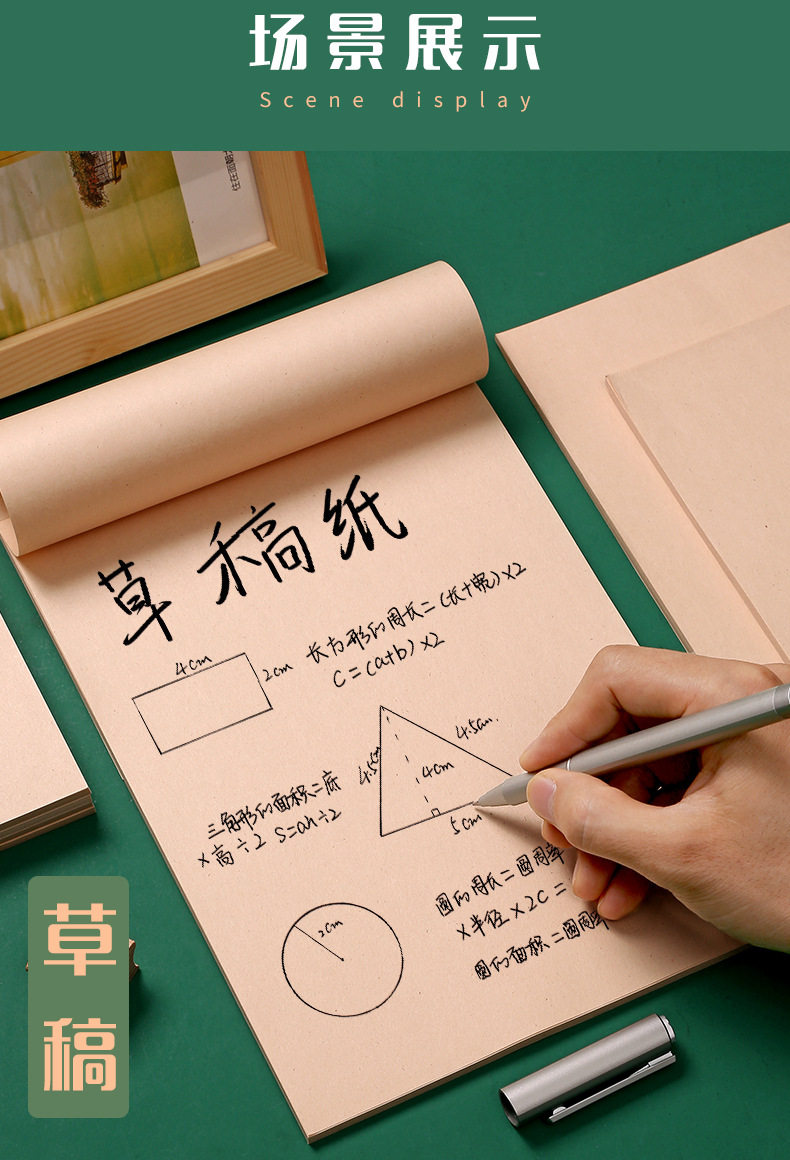 场景展示
Scene display
草稿纸
长方形的周长=(长+宽)×2
C=(a+b)×2
4cm
2cm
4.5cm
4.5cm
4cm
5cm
三角形的面积=底
×高÷2 S=ah÷2
圆的周长=圆周率
×半径×2C=
圆的面积=圆周率
2cm
草
稿